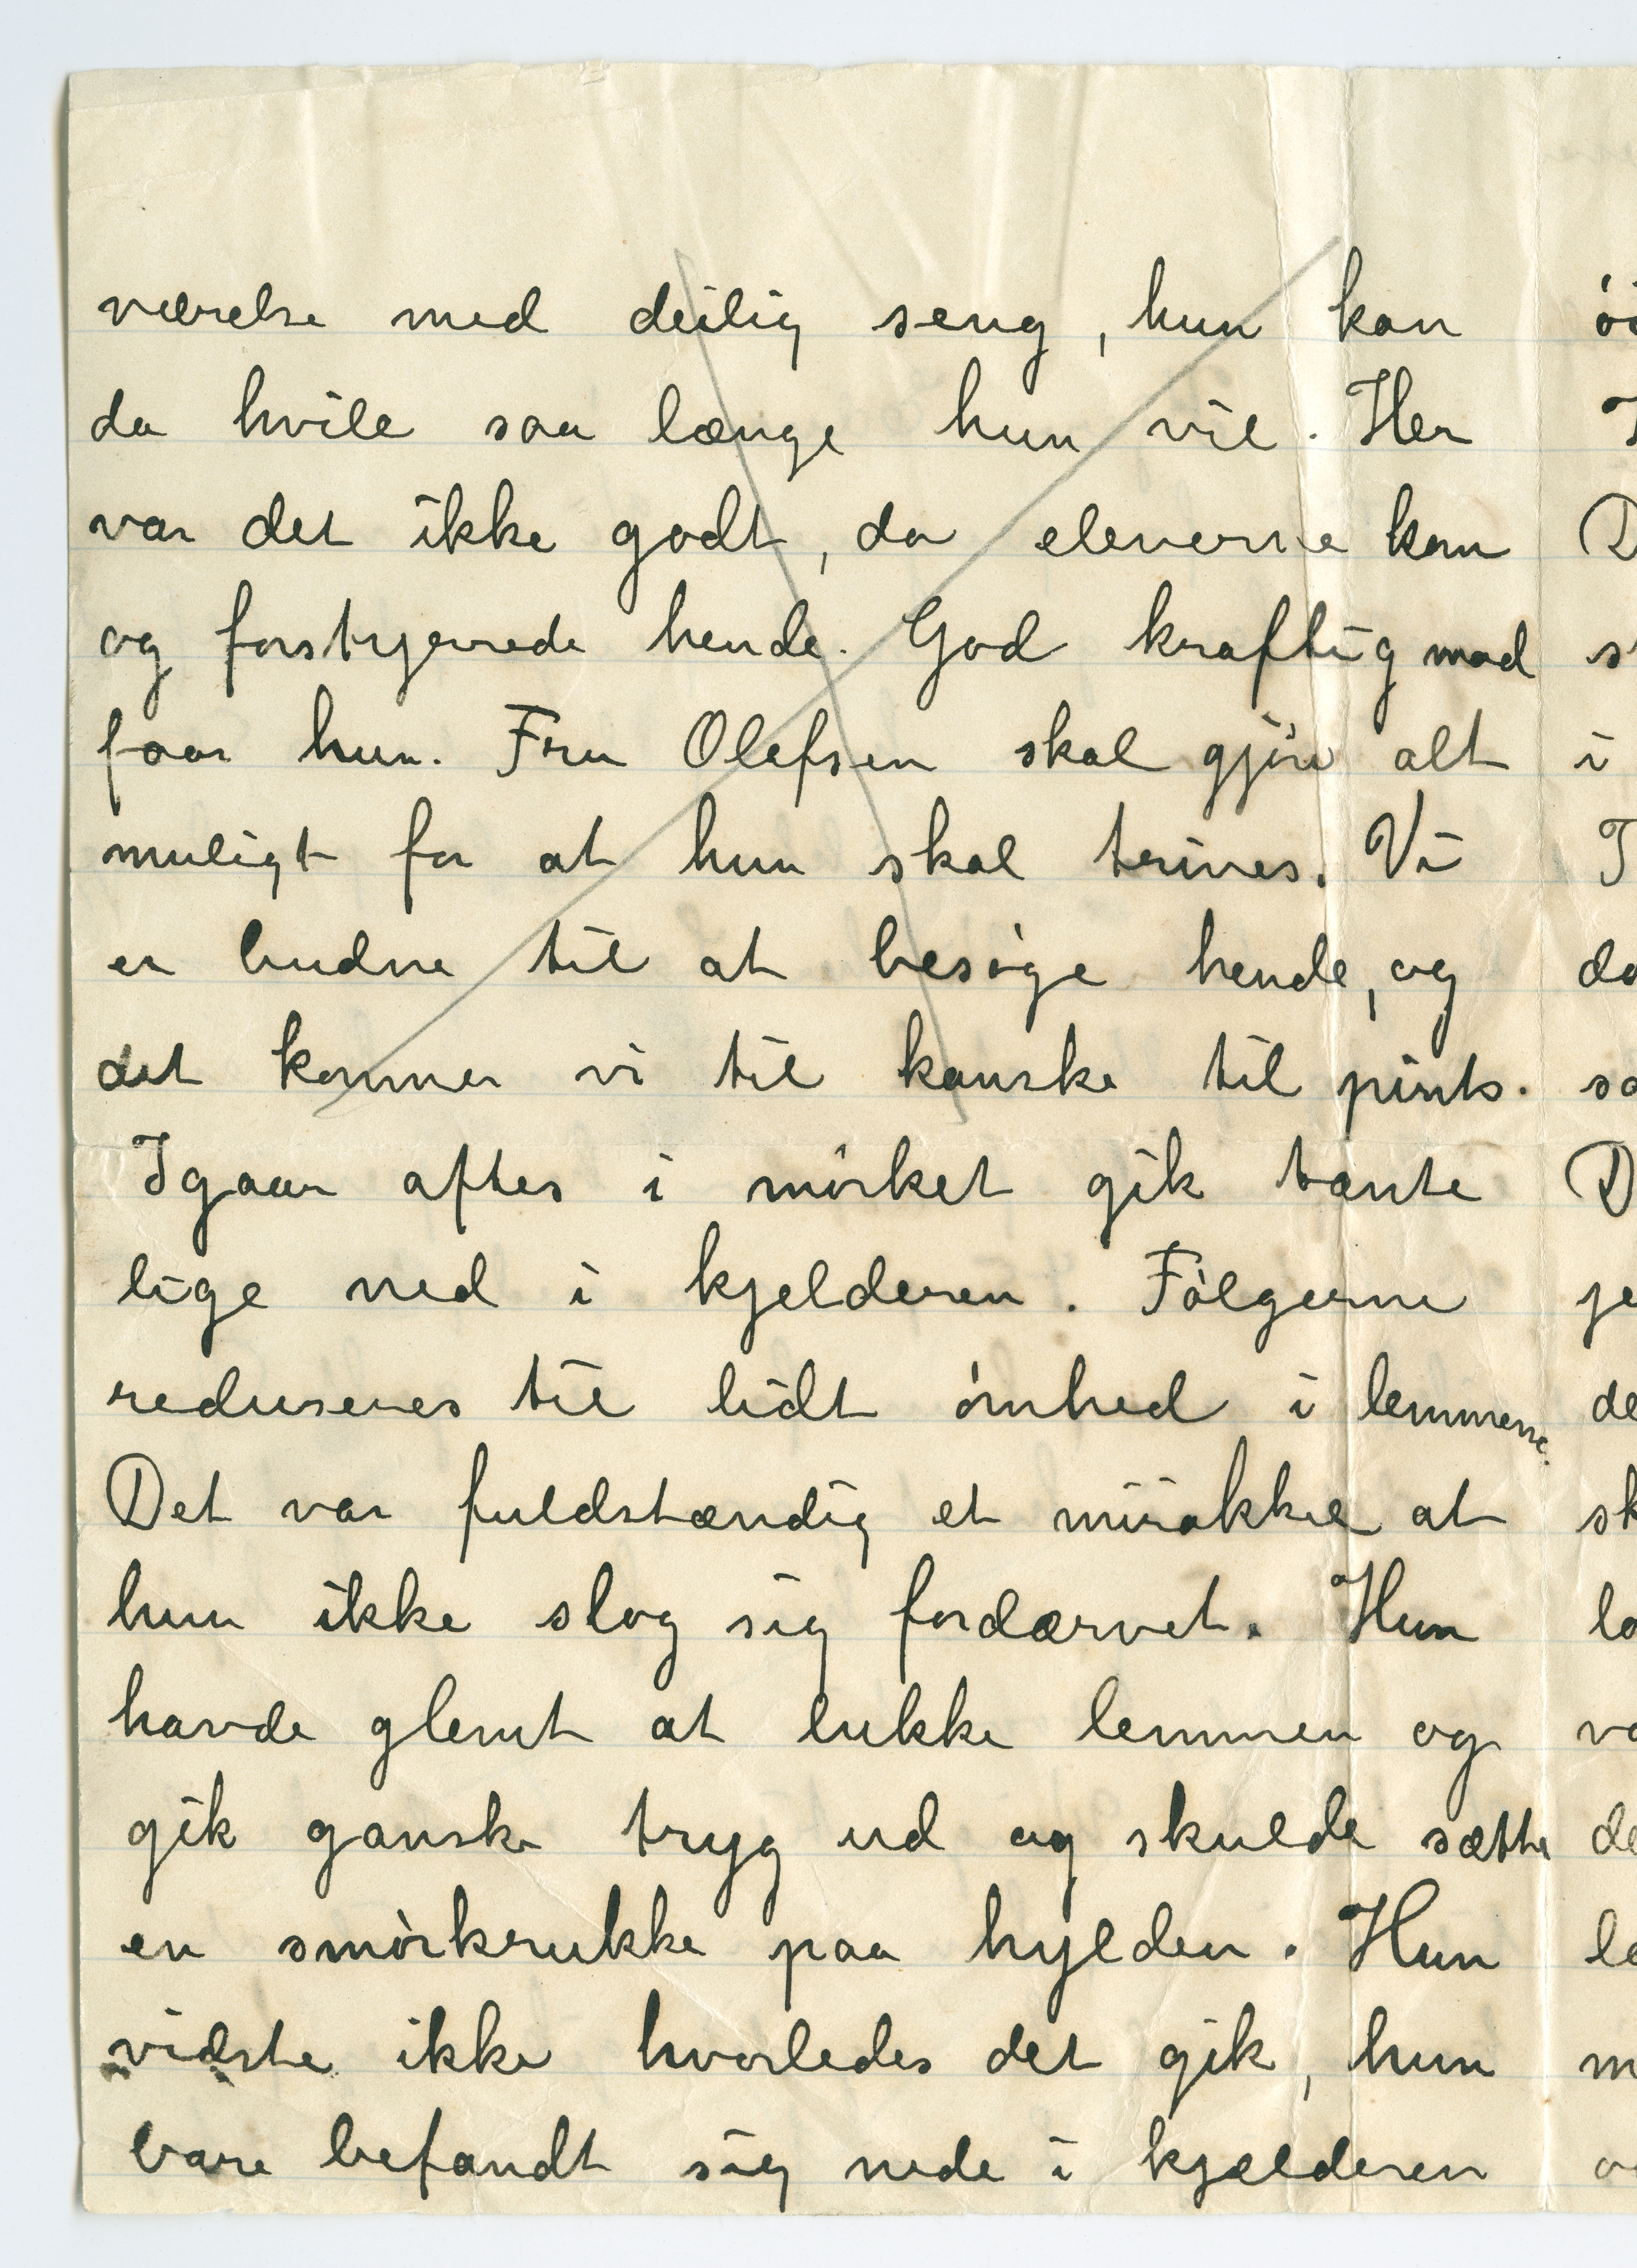 værelse med deilig seng, hun kan
da hvile saa længe hun vil. Her
var det ikke godt, da eleverne kom
og forstyrrede hende. God kraftig mad
faar hun. Fru Olefsen skal gjøre alt
muligt for at hun skal trives. Vi
er budne til at besøge hende, og
det kommer vi til kanske til pints.
Igaar aftes i mørket gik tante
lige ned i kjelderen. Følgerne
reduseres til lidt ømhed i lemmerne.
Det var fuldstændig et mirakkel at
hun ikke slog sig fordærvet. Hun
havde glemt at lukke lemmen og
gik ganske tryg ud og skulde sætte
en smørkrukke paa hylden. Hun
vidste ikke hvorledes det gik, hun
bare befandt sig nede i kjælderen